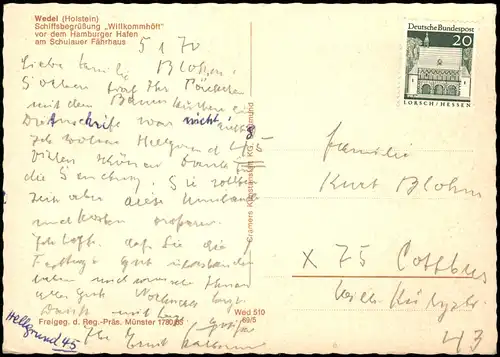 Wedel (Holstein)
Schiffsbegrüßung „Willkommhöft"
vor dem Hamburger Hafen
am Schulauer Fährhaus
5 1 70
Liebe Familie Blohm!
Soeben traf Ihr Päckchen
mit dem Baumkuchen ein
Die Anschrift war nicht
Ich wohne Hellgrund 45
Vielen schönen Dank für
die Sendung. Sie sollten
sich aber diese Umstände
und Kosten ersparen.
Ich hoffe, daß Sie die
Festtage gut überstanden
haben und wünsche Ihnen
alles Gute
Ihr Ernst
Hellgrund 45
Freigeg. d. Reg.-Präs. Münster 1780/65
Wed 510
69/5
Cramers Kunstanstalt KG, Dortmund
Deutsche Bundespost
20
LORSCH/HESSEN
Familie
Kurt Blohm
X 75 Cottbus
43